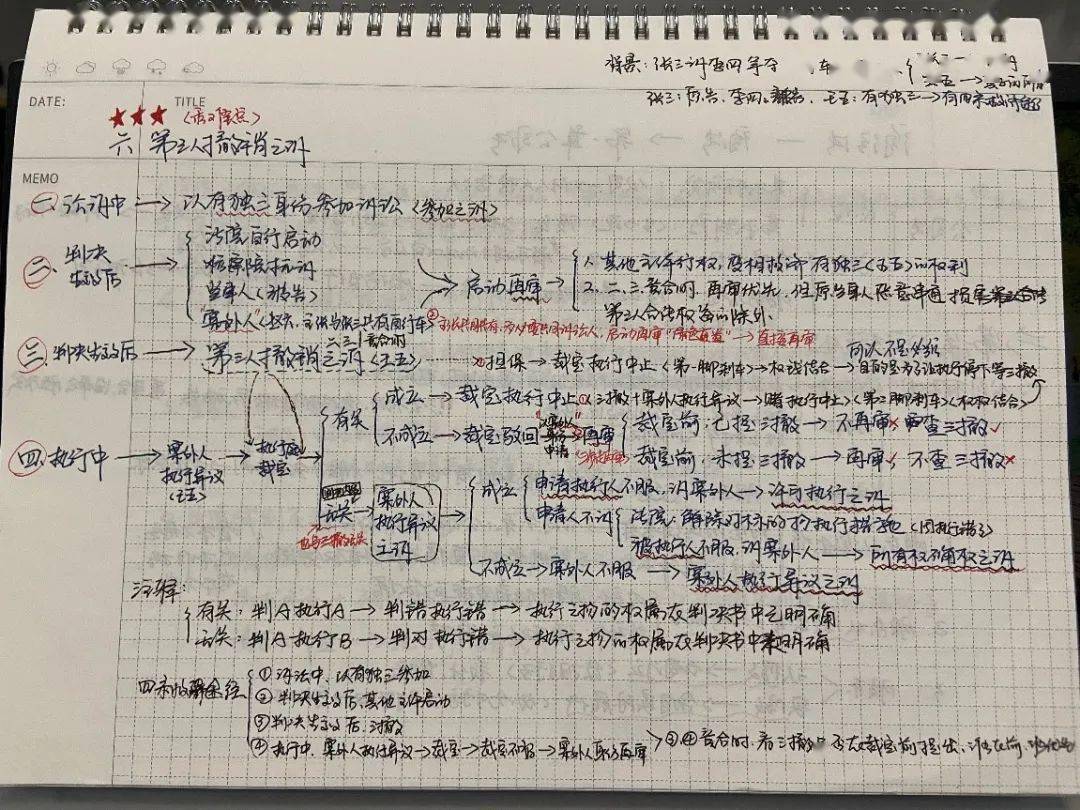 背景：张三诉李四等夺 车
张三：原告，李四：被告 王五：有独三→有四条救济途径
DATE:
TITLE
★★★（重难点）
六 第三人撤销之诉
MEMO
一、诉讼中→以有独三身份参加诉讼（参加之诉）
二、判决生效后→
法院自行启动
检察院抗诉
当事人（被告）
"案外人"
启动再审→
1、其他主体行权，变相救济有独三（王五）的权利
2、二、三竞合时，再审优先，但原当事人恶意串通损害第三人合法
第三人合法权益的除外
直接再审
三、判决生效后→第三人撤销之诉（王五）
担保→裁定执行中止（第一脚刹车）→权钱结合→目的是为了让执行停下等三撤
可以不是必须
四、执行中→案外人执行异议（王五）→执行庭裁定→
有关
成立→裁定执行中止 ①三撤+案外人执行异议→赌执行中止（第二脚刹车）（权权结合）
不成立→裁定驳回→"案外人"申请再审
裁定前，已提三撤→不再审× 审查三撤✓
裁定前，未提三撤→再审✓ 不查三撤×
无关→案外人执行异议之诉→
也与三撤无关
成立
申请执行人不服，诉案外人→许可执行之诉
申请人不诉
法院：解除对标的物执行措施（因执行错了）
被执行人不服，诉案外人→所有权确权之诉
不成立→案外人不服→案外人执行异议之诉
注释：
有关：判A执行A→判错执行错→执行之物的权属在判决书中已明确
无关：判A执行B→判对执行错→执行之物的权属在判决书中未明确
四条救济途径
①诉讼中，以有独三参加
②判决生效后，其他主体启动
③判决生效后，三撤
④执行中，案外人执行异议→裁定→裁定不服→案外人申请再审
③、④竞合时，看三撤是否在裁定前提出，谁在前，